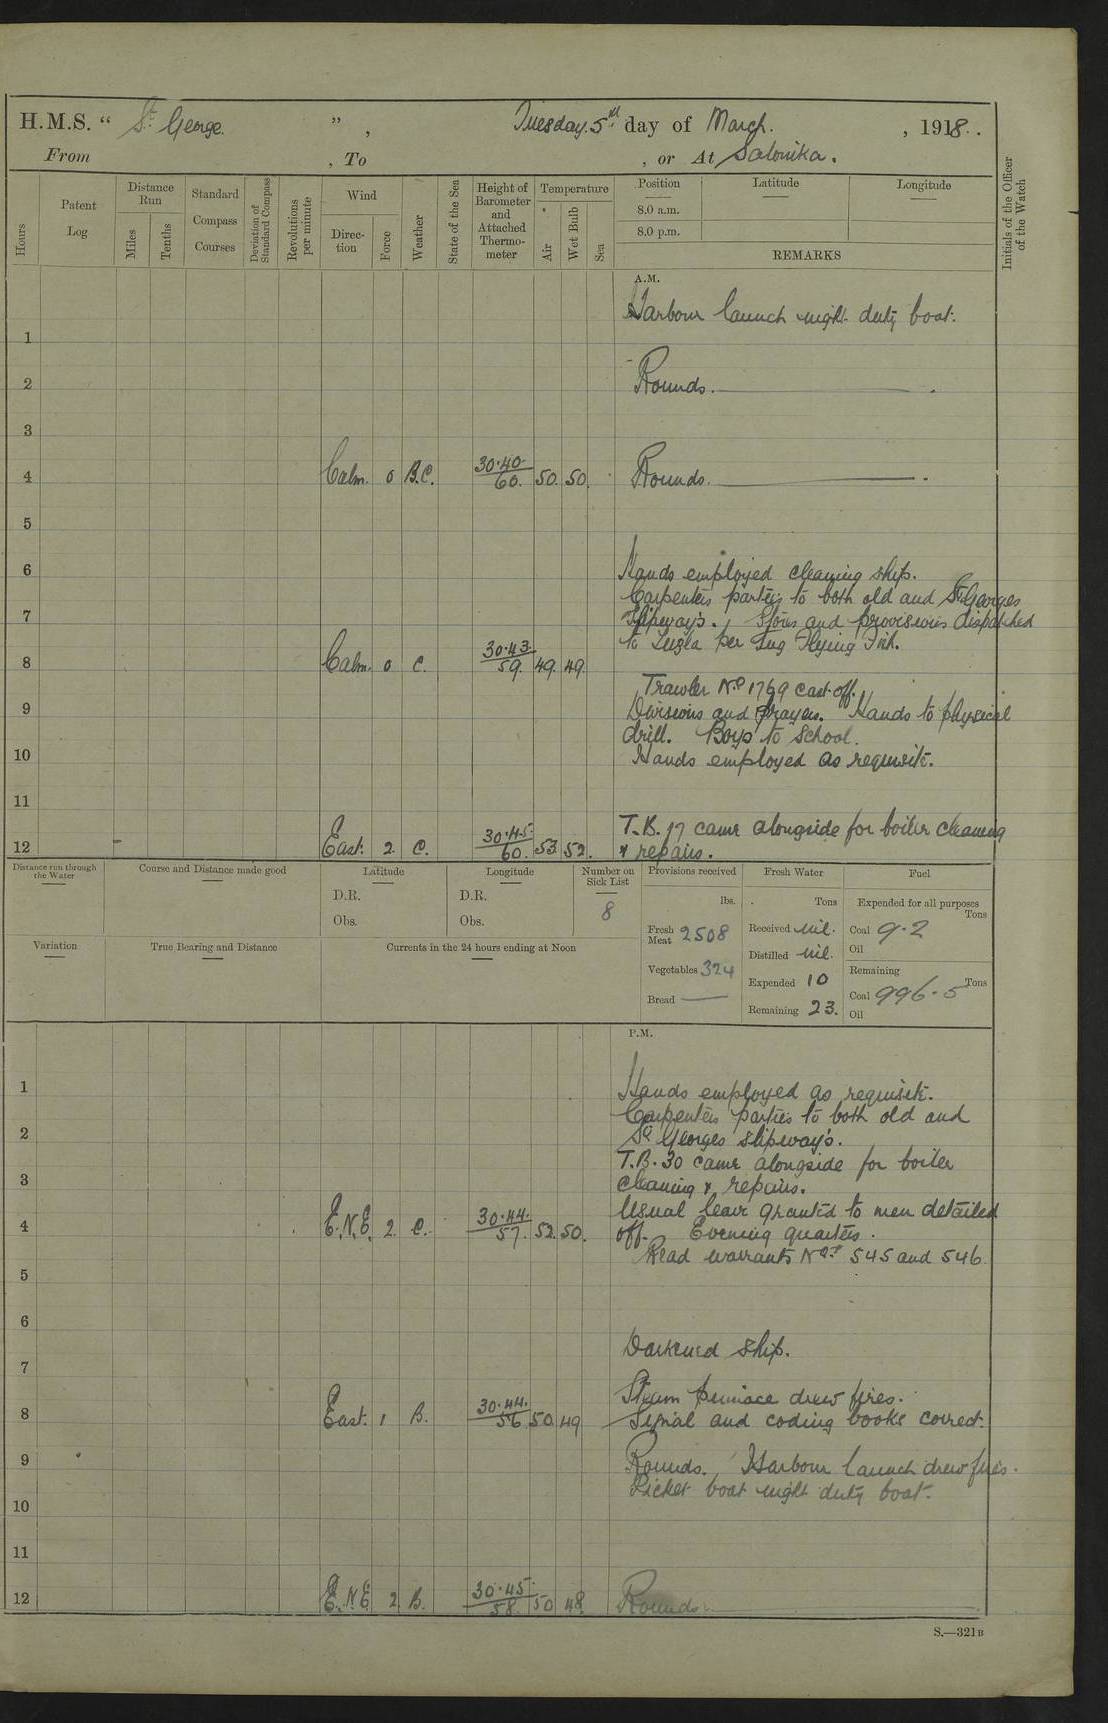 H.M.S. “ St. George. ” , Tuesday. 5th day of March. , 1918.
From , To , or At Salonika.
Hours
Patent Log
Distance Run
Miles
Tenths
Standard Compass Courses
Deviation of Standard Compass
Revolutions per minute
Wind
Direction
Force
Weather
State of the Sea
Height of Barometer and Attached Thermometer
Temperature
Air
Wet Bulb
Sea
Position
Latitude
Longitude
8.0 a.m.
8.0 p.m.
REMARKS
Initials of the Officer of the Watch
A.M.
Harbour launch night duty boat.
1
2 Rounds.
3
4 Calm. 0 B.C. 30.40 60. 50. 50. Rounds.
5
6 Hands employed cleaning ship.
Carpenters parties to both old and St. Georges
7 Slipway's. Stores and provisions dispatched
to per Tug Flying Fish.
8 Calm. 0 C. 30.43 59. 49. 49.
Trawler No 1769 cast off.
9 Divisions and Prayers. Hands to physical
drill. Boys to School.
10 Hands employed as requisite.
11
T.B. 17 came alongside for boiler cleaning
12 East. 2 C. 30.45 60. 53. 52. & repairs.
Distance run through the Water
Course and Distance made good
Latitude
D.R.
Obs.
Longitude
D.R.
Obs.
Number on Sick List
8
Provisions received
lbs.
Fresh Meat 2508
Vegetables 324
Bread —
Fresh Water
Tons
Received nil.
Distilled nil.
Expended 10
Remaining 23.
Fuel
Expended for all purposes
Tons
Coal 9.2
Oil
Remaining
Tons
Coal 996.5
Oil
Variation
True Bearing and Distance
Currents in the 24 hours ending at Noon
P.M.
1 Hands employed as requisite.
Carpenters parties to both old and
2 St. Georges slipway's.
T.B. 30 came alongside for boiler
3 cleaning & repairs.
Usual leave granted to men detailed
4 E.N.E. 2 C. 30.44. 57. 52. 50. off. Evening quarters.
Read warrants Nos. 545 and 546.
5
6
Darkened ship.
7
Steam pinnace drew fires.
8 East. 1 B. 30.44. 56 50 49 Signal and coding books correct.
9 Rounds. Harbour launch drew fires.
Picket boat night duty boat.
10
11
12 E.N.E. 2 B. 30.45 58. 50 48. Rounds.
S.—321B